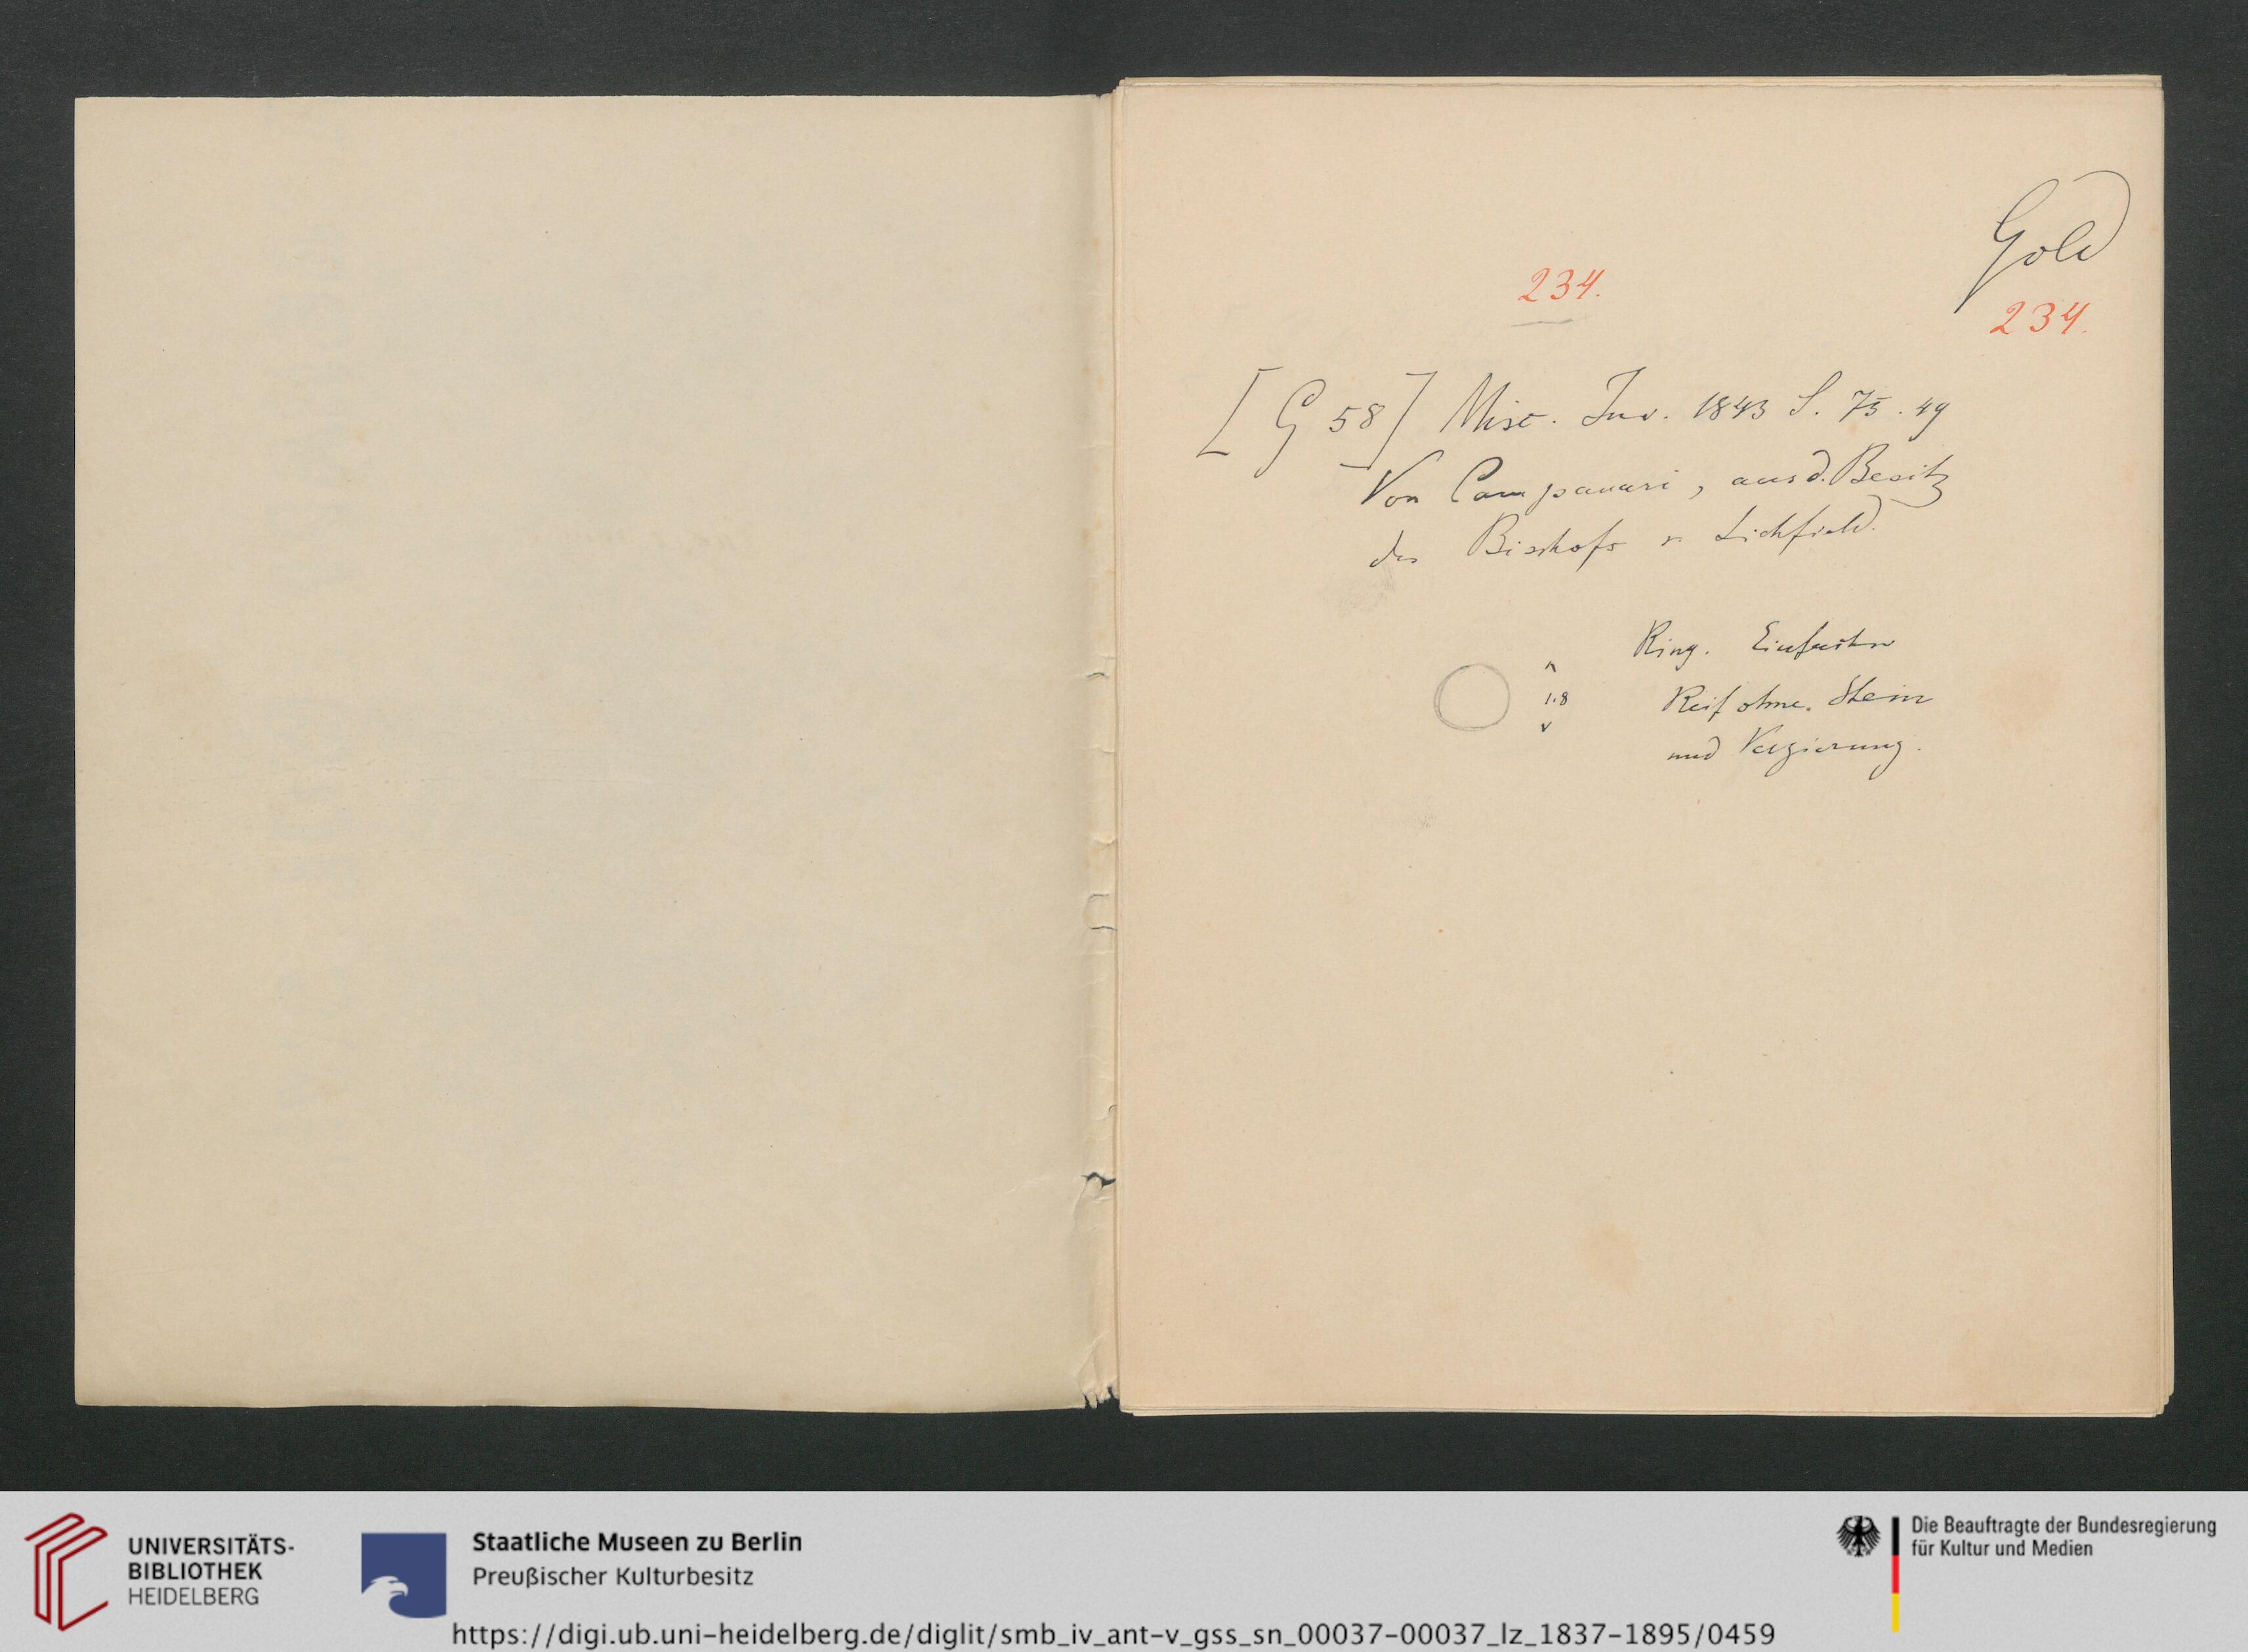 Gold
234.
234.
[G 58] Misc. Inv. 1843 S. 75. 49
Von Campanari, aus d. Besitz
des Bischofs v. Lichfield.
Ring. Einfacher
1.8
Reif ohne Stein
und Verzierung.
UNIVERSITÄTS-
BIBLIOTHEK
HEIDELBERG
Staatliche Museen zu Berlin
Preußischer Kulturbesitz
Die Beauftragte der Bundesregierung
für Kultur und Medien
https://digi.ub.uni-heidelberg.de/diglit/smb_iv_ant-v_gss_sn_00037-00037_lz_1837-1895/0459